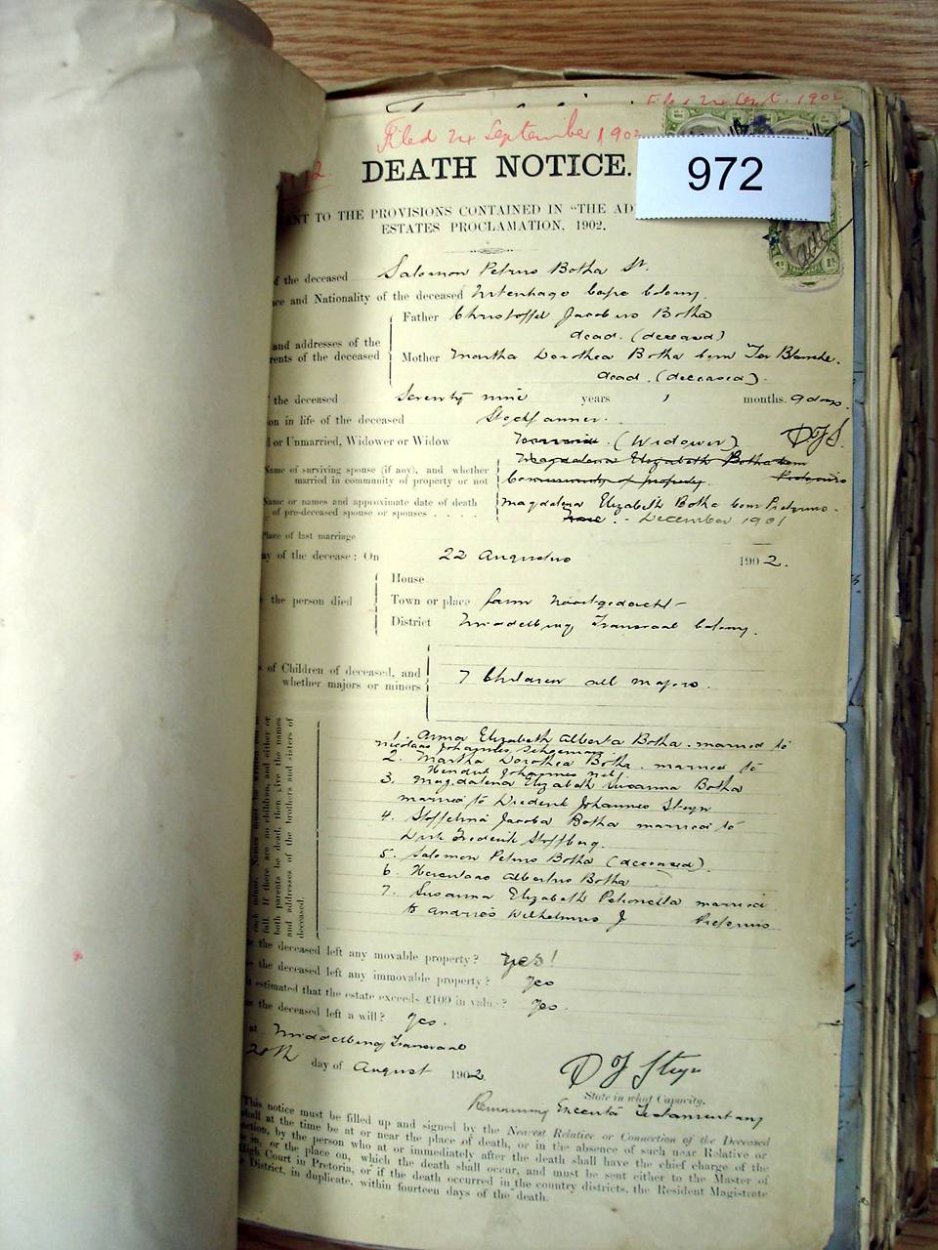 Filed 24 September 1902
972
DEATH NOTICE.
ANT TO THE PROVISIONS CONTAINED IN "THE AD
ESTATES PROCLAMATION, 1902.
of the deceased Salomon Petrus Botha Sr.
ce and Nationality of the deceased Uitenhage Cape Colony.
Father Christoffel Jacobus Botha
dead. (deceased)
and addresses of the
rents of the deceased
Mother Martha Dorothea Botha born Ter Blanche.
dead. (deceased).
the deceased Seventy nine years 1 months. 9 days.
on in life of the deceased Stockfarmer.
d or Unmarried, Widower or Widow (Widower) DJS.
Name of surviving spouse (if any), and whether Magdalena Elizabeth Botha born
married in community of property or not Community of property. Pretorius
Name or names and approximate date of death Magdalena Elizabeth Botha born Pretorius.
of pre-deceased spouse or spouses . . . . None. - December 1901
Place of last marriage
ay of the decease: On 22 Augustus 1902.
House
the person died Town or place farm Nooitgedacht
District Middelburg Transvaal Colony.
s of Children of deceased, and
whether majors or minors 7 Children all majors.
1. Anna Elizabeth Alberta Botha. married to
Nicolaas Johannes Schoeman.
2. Martha Dorothea Botha. married to
Hendrik Johannes Nel
3. Magdalena Elizabeth Susanna Botha
married to Diederik Johannes Steyn
4. Stoffelina Jacoba Botha married to
Dirk Frederik Stoffberg.
5. Salomon Petrus Botha (deceased).
6. Herculaas Albertus Botha
7. Susanna Elizabeth Petronella married
to Andries Wilhelmus J Pretorius
both parents be dead, then give the names
and addresses of the brothers and sisters of
deceased.
the deceased left any movable property? Yes!
the deceased left any immovable property? Yes
estimated that the estate exceeds £100 in value? Yes.
the deceased left a will? Yes.
at Middelburg Transvaal
28th day of August 1902
D J Steyn
State in what Capacity.
Remaining Executor Testamentary
This notice must be filled up and signed by the Nearest Relative or Connection of the Deceased
shall at the time be at or near the place of death, or in the absence of such near Relative or
ction, by the person who at or immediately after the death shall have the chief charge of the
in, or the place on, which the death shall occur, and must be sent either to the Master of
High Court in Pretoria, or if the death occurred in the country districts, the Resident Magistrate
District, in duplicate, within fourteen days of the death.